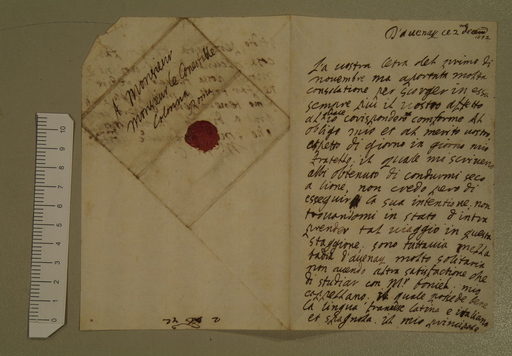 A Monsieur
Monsieur Le Conestable
Colonna
Rome
D'avenay ce 2
La vostra letra del primo di
novembre ma aportata molta
consolatione per scorger in essa
sempre piu il vostro affetto
al quale corisponderò conforme al
obligo mio et al merito vostro
aspeto di giorno in giorno mio
fratello, il quale mi scriveva
obtenuto di condurmi seco
a lione, non credo pero di
esseguir la sua intentione, non
trovandomi in stato d'intra
prender tal viaggio in questa
staggione, sono tutavia nella
badia d'avenay molto solitaria
non avendo altra satisfatione che
di studiar con Mr mio
cappellano, il quale possede bene
la lingua francese latina e italiana
et spagnola. il mio principale